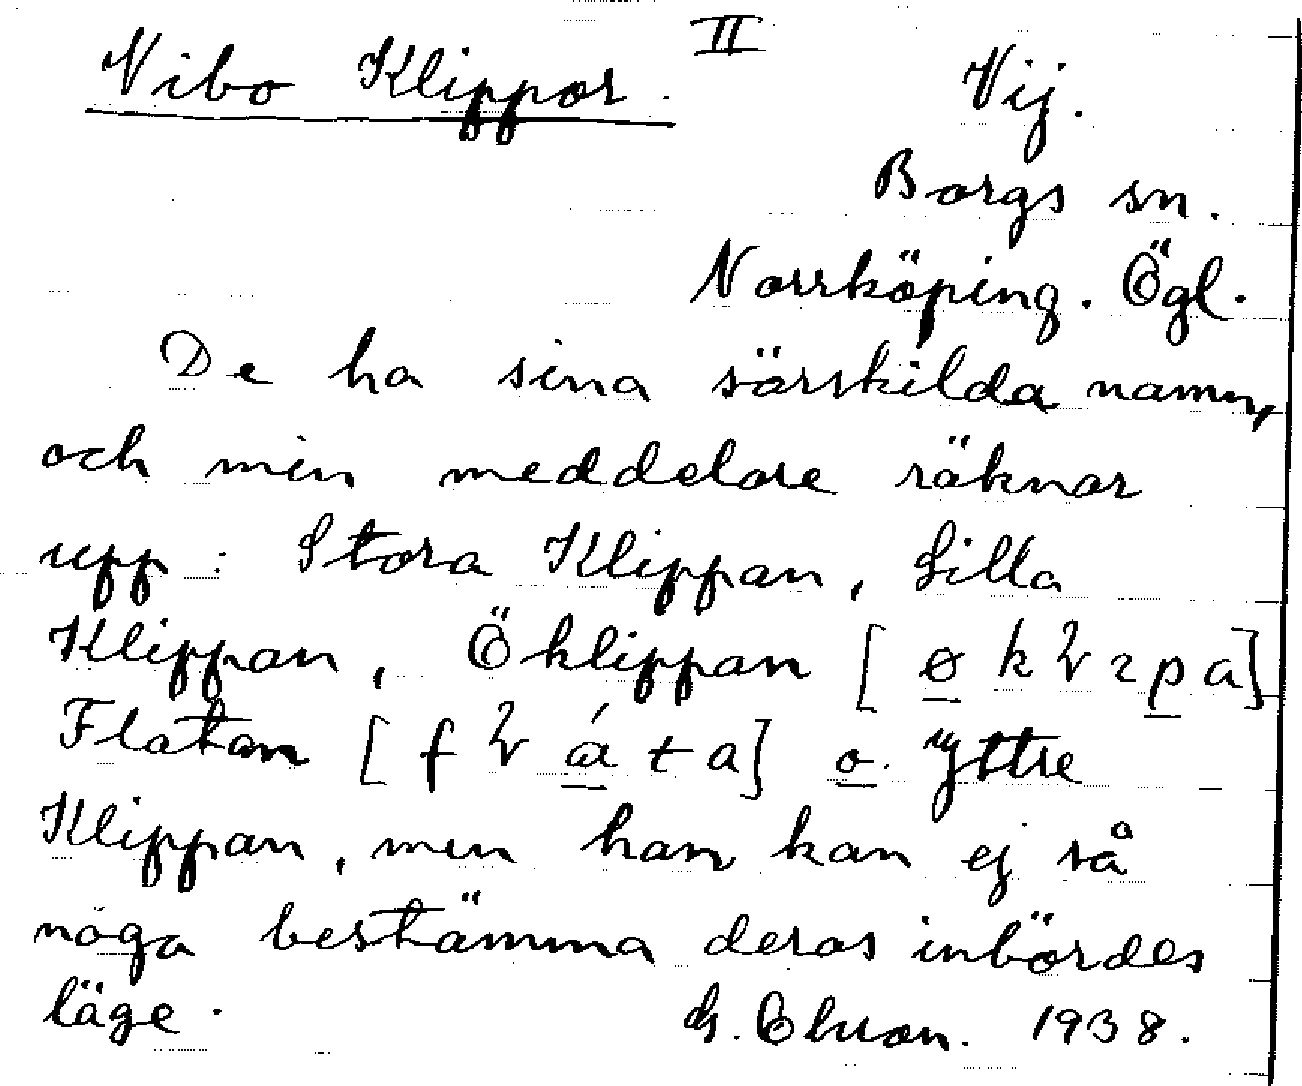 II
Vibo Klippor.
Vij.
Borgs sn.
Norrköping. Ögl.
De ha sina särskilda namn,
och min meddelare räknar
upp: Stora Klippan, Lilla
Klippan, Öklippan
Flatan o. Yttre
Klippan, men han kan ej så
noga bestämma deras inbördes
läge.
1938.